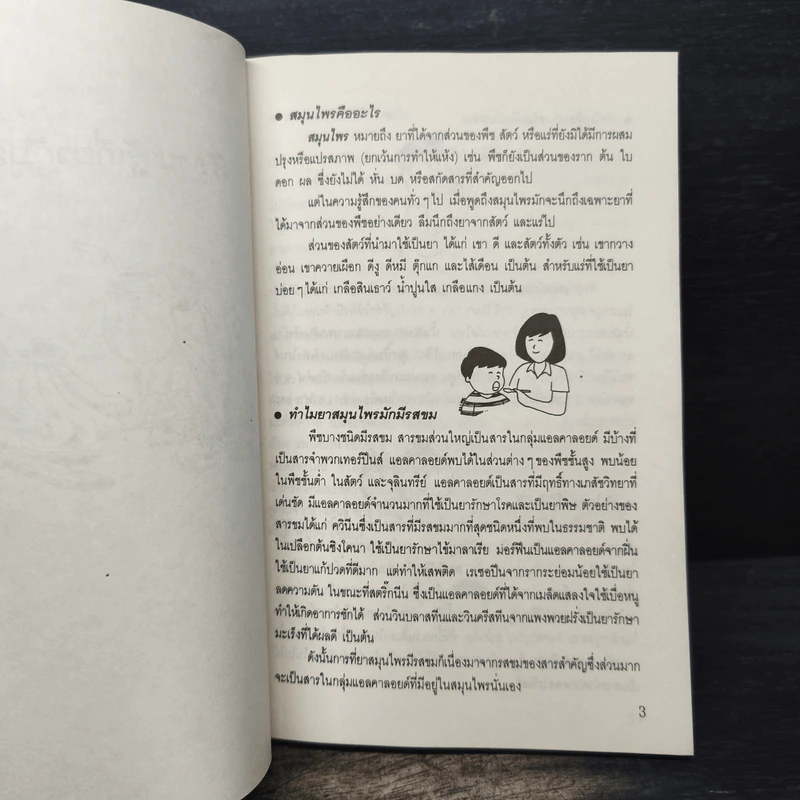 ● สมุนไพรคืออะไร
สมุนไพร หมายถึง ยาที่ได้จากส่วนของพืช สัตว์ หรือแร่ที่ยังมิได้มีการผสม
ปรุงหรือแปรสภาพ (ยกเว้นการทำให้แห้ง) เช่น พืชก็ยังเป็นส่วนของราก ต้น ใบ
ดอก ผล ซึ่งยังไม่ได้ หั่น บด หรือสกัดสารที่สำคัญออกไป
แต่ในความรู้สึกของคนทั่วๆไป เมื่อพูดถึงสมุนไพรมักจะนึกถึงเฉพาะยาที่
ได้มาจากส่วนของพืชอย่างเดียว ลืมนึกถึงยาจากสัตว์ และแร่ไป
ส่วนของสัตว์ที่นำมาใช้เป็นยา ได้แก่ เขา ดี และสัตว์ทั้งตัว เช่น เขากวาง
อ่อน เขาควายเผือก ดีงู ดีหมี ตุ๊กแก และไส้เดือน เป็นต้น สำหรับแร่ที่ใช้เป็นยา
บ่อยๆได้แก่ เกลือสินเธาว์ น้ำปูนใส เกลือแกง เป็นต้น
● ทำไมยาสมุนไพรมักมีรสขม
พืชบางชนิดมีรสขม สารขมส่วนใหญ่เป็นสารในกลุ่มแอลคาลอยด์ มีบ้างที่
เป็นสารจำพวกเทอร์ปีนส์ แอลคาลอยด์พบได้ในส่วนต่างๆของพืชชั้นสูง พบน้อย
ในพืชชั้นต่ำ ในสัตว์ และจุลินทรีย์ แอลคาลอยด์เป็นสารที่มีฤทธิ์ทางเภสัชวิทยาที่
เด่นชัด มีแอลคาลอยด์จำนวนมากที่ใช้เป็นยารักษาโรคและเป็นยาพิษ ตัวอย่างของ
สารขมได้แก่ ควินีนซึ่งเป็นสารที่มีรสขมมากที่สุดชนิดหนึ่งที่พบในธรรมชาติ พบได้
ในเปลือกต้นซิงโคนา ใช้เป็นยารักษาไข้มาลาเรีย มอร์ฟีนเป็นแอลคาลอยด์จากฝิ่น
ใช้เป็นยาแก้ปวดที่ดีมาก แต่ทำให้เสพติด เรเซอปีนจากรากระย่อมน้อยใช้เป็นยา
ลดความดัน ในขณะที่สตริ๊กนีน ซึ่งเป็นแอลคาลอยด์ที่ได้จากเมล็ดแสลงใจใช้เบื่อหนู
ทำให้เกิดอาการชักได้ ส่วนวินบลาสทีนและวินคริสทีนจากแพงพวยฝรั่งเป็นยารักษา
มะเร็งที่ได้ผลดี เป็นต้น
ดังนั้นการที่ยาสมุนไพรมีรสขมก็เนื่องมาจากรสขมของสารสำคัญซึ่งส่วนมาก
จะเป็นสารในกลุ่มแอลคาลอยด์ที่มีอยู่ในสมุนไพรนั่นเอง
3